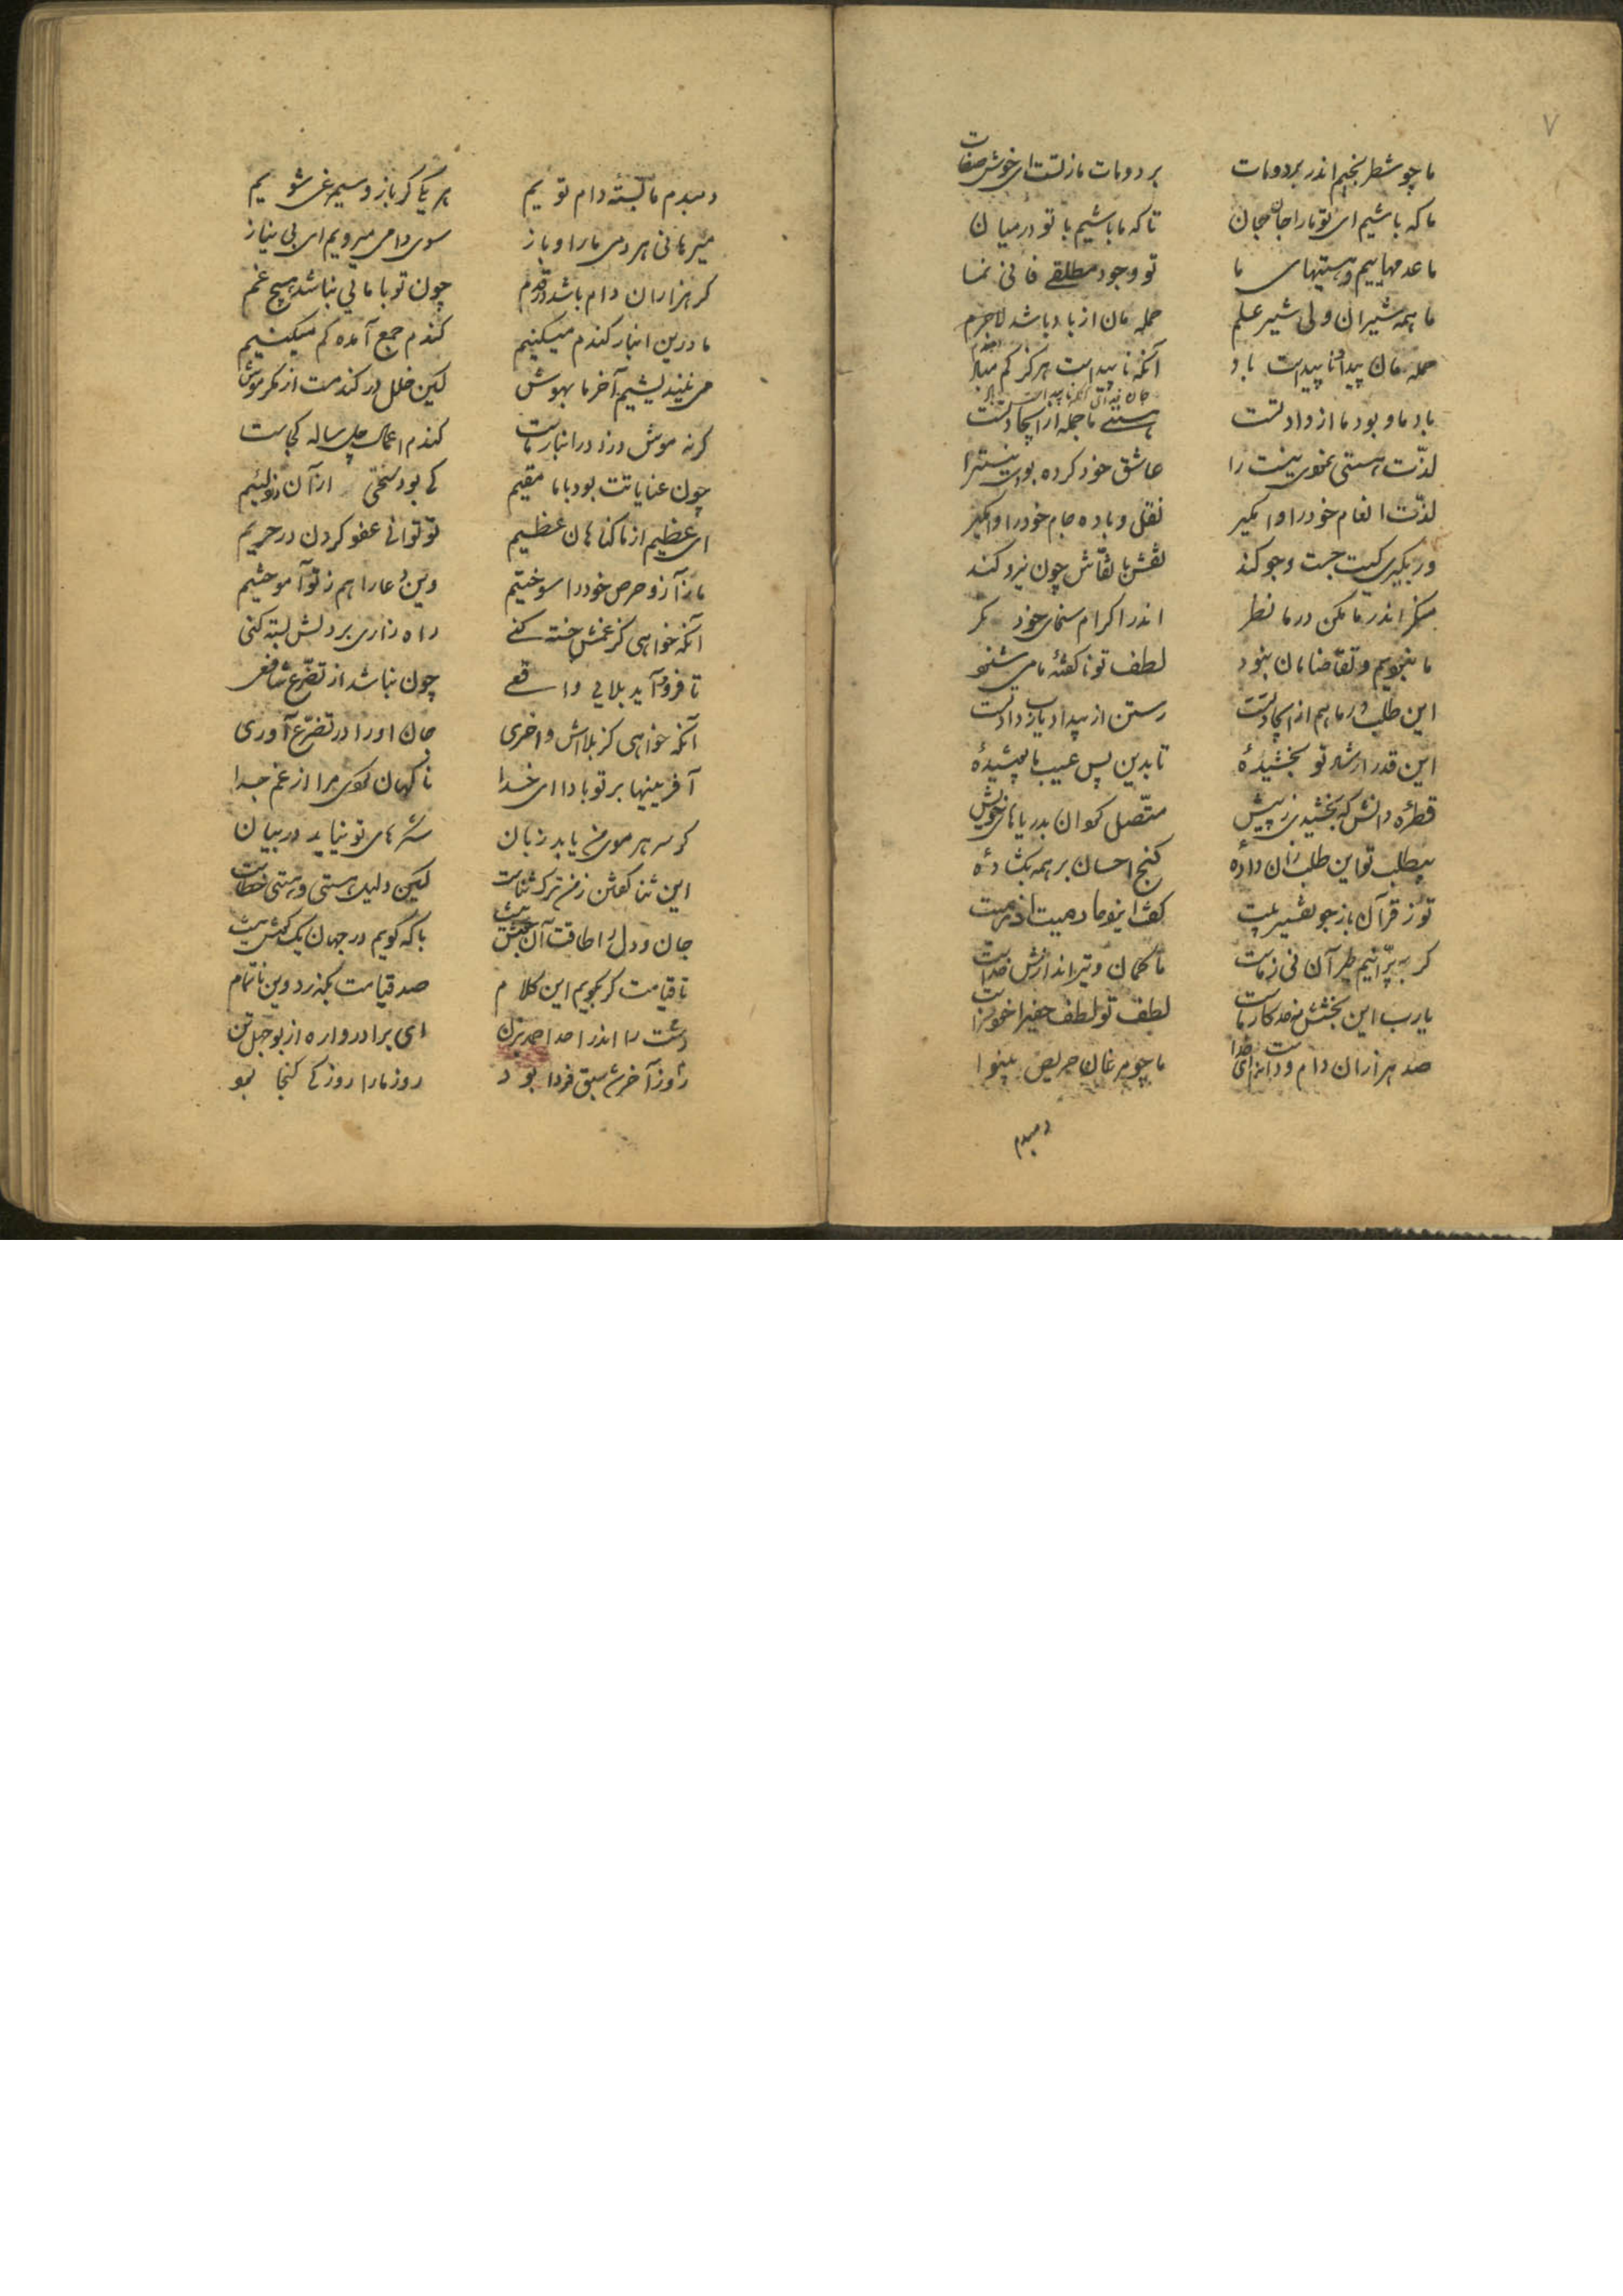 ۷
ما چو شطرنجیم اندر برد و مات برد و مات ما ز تست ای خوش صفات
ما که باشیم ای تو ما را جان جان تا که ما باشیم با تو در میان
ما عدمهاییم و هستیهای ما تو وجود مطلقی فانی نما
ما همه شیران ولی شیر علم حمله مان از باد باشد لاجرم
حمله مان پیدا و ناپیداست باد آنکه ناپیداست هرگز کم مباد
باد ما و بود ما از داد تست هستی ما جمله از ایجاد تست
لذت هستی نمودی نیست را عاشق خود کرده بودی نیست را
لذت انعام خود را وامگیر نقل و باده جام خود را وامگیر
ور بگیری کیست جست و جو کند نقش با نقاش چون نیرو کند
منگر اندر ما مکن در ما نظر اندر اکرام سخای خود نگر
ما نبودیم و تقاضامان نبود لطف تو ناگفته ما می شنود
این طلب در ما هم از ایجاد تست رستن از بیداد یارب داد تست
این قدر ارشاد تو بخشیدهٔ تا بدین بس عیب ما پوشیدهٔ
قطرهٔ دانش که بخشیدی ز پیش متصل گردان بدریاهای خویش
بیطلب تو این طلب مان دادهٔ گنج احسان بر همه بگشادهٔ
تو ز قرآن باز جو تفسیر بیت گفت ایزد ما رمیت اذ رمیت
گر بپرانیم تیر آن نی ز ماست ما کمان و تیراندازش خداست
یارب این بخشش نه حد کار ماست لطف تو لطف خفی را خود سزاست
صد هزاران دام و دانه است ای خدا ما چو مرغان حریص بینوا
دمبدم
دمبدم ما بستهٔ دام تو ییم هر یکی گر باز و سیمرغی شویم
میرهانی هر دمی ما را و باز سوی دامی میرویم ای بی نیاز
گر هزاران دام باشد در قدم چون تو با مایی نباشد هیچ غم
ما درین انبار گندم میکنیم گندم جمع آمده گم میکنیم
می نیندیشیم آخر ما بهوش کین خلل در گندمست از مکر موش
گر نه موش دزد در انبار ماست گندم اعمال چل ساله کجاست
چون عنایاتت بود با ما مقیم کی بود سختی از آن دزد لئیم
ای عظیم از ما گناهان عظیم تو توانی عفو کردن در حریم
ما ز آز و حرص خود را سوختیم وین دعا را هم ز تو آموختیم
آنکه خواهی کز غمش خسته کنی راه زاری بر دلش بسته کنی
تا فرود آید بلایی دافعی چون نباشد از تضرع شافعی
آنکه خواهی کز بلااش واخری جان او را در تضرع آوری
آفرینها بر تو بادا ای خدا ناگهان کردی مرا از غم جدا
گر سر هر موی من یابد زبان شکرهای تو نیاید در بیان
این ثنا گفتن ز من ترک ثناست کین دلیل هستی و هستی خطاست
جان و دل را طاقت آن جوش نیست با که گویم در جهان یک گوش نیست
تا قیامت گر بگویم این کلام صد قیامت بگذرد وین ناتمام
دست را اندر احد احمد بزن ای برادر واره از بوجهل تن
روز آخر شد سبق فردا بود روز ما را روز کی گنجا بود